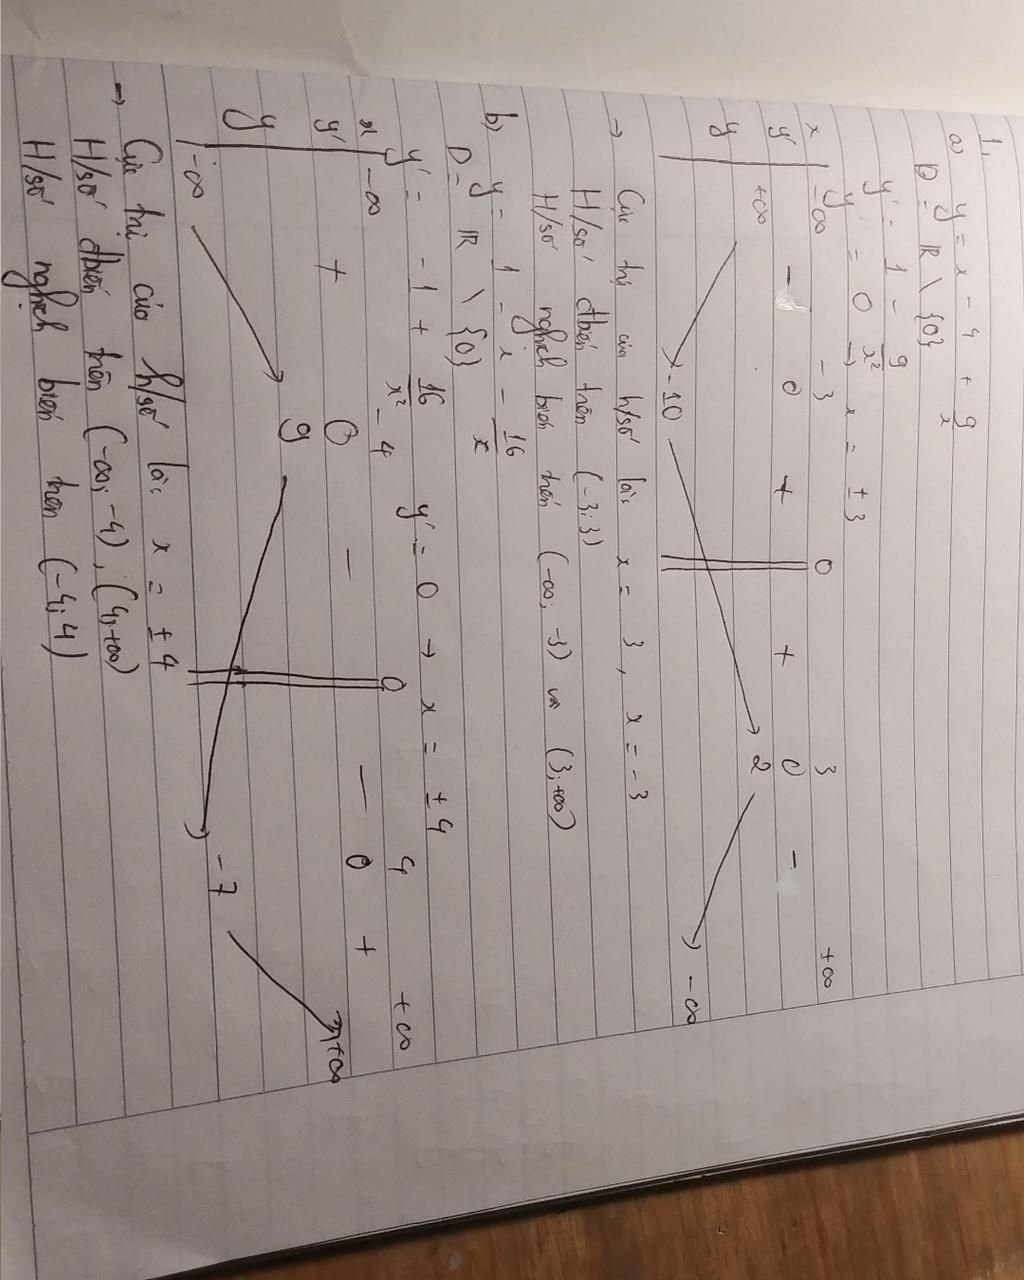 1,
a) y = x - 4 + 9/x
D = R \ {0}
y' = 1 - 9/x²
y' = 0 → x = ±3
x -∞ -3 0 3 +∞
y' - 0 + || + 0 -
y +∞ -10 2 -∞
→ Cực trị của h/số là: x = 3, x = -3
H/số đbiến trên (-3; 3)
H/số nghịch biến trên (-∞; -3) và (3; +∞)
b) y = 1 - x - 16/x
D = R \ {0}
y' = -1 + 16/x² y' = 0 → x = ±4
x -∞ -4 0 4 +∞
y' + 0 - || - 0 +
y -∞ 9 -7 +∞
→ Cực trị của h/số là: x = ±4
H/số đbiến trên (-∞; -4), (4; +∞)
H/số nghịch biến trên (-4; 4)